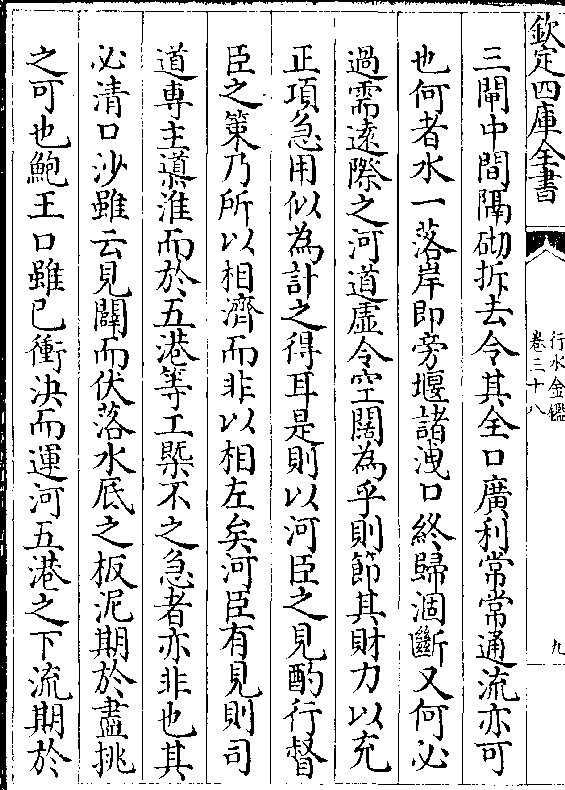 欽定四庫全書
行水金鑑
卷三十八
九
三閘中間隔砌拆去令其全口廣利常常通流亦可
也何者水一落岸即旁堰諸洩口終歸涸斷又何必
過需遠際之河道虛令空闊為乎則節其財力以充
正項急用似為計之得耳是則以河臣之見酌行督
臣之策乃所以相濟而非以相左矣河臣有見則司
道専主導淮而於五港等工槩不之急者亦非也其
必清口沙雖云見闢而伏落水底之板泥期於盡挑
之可也鮑王口雖已衝決而運河五港之下流期於